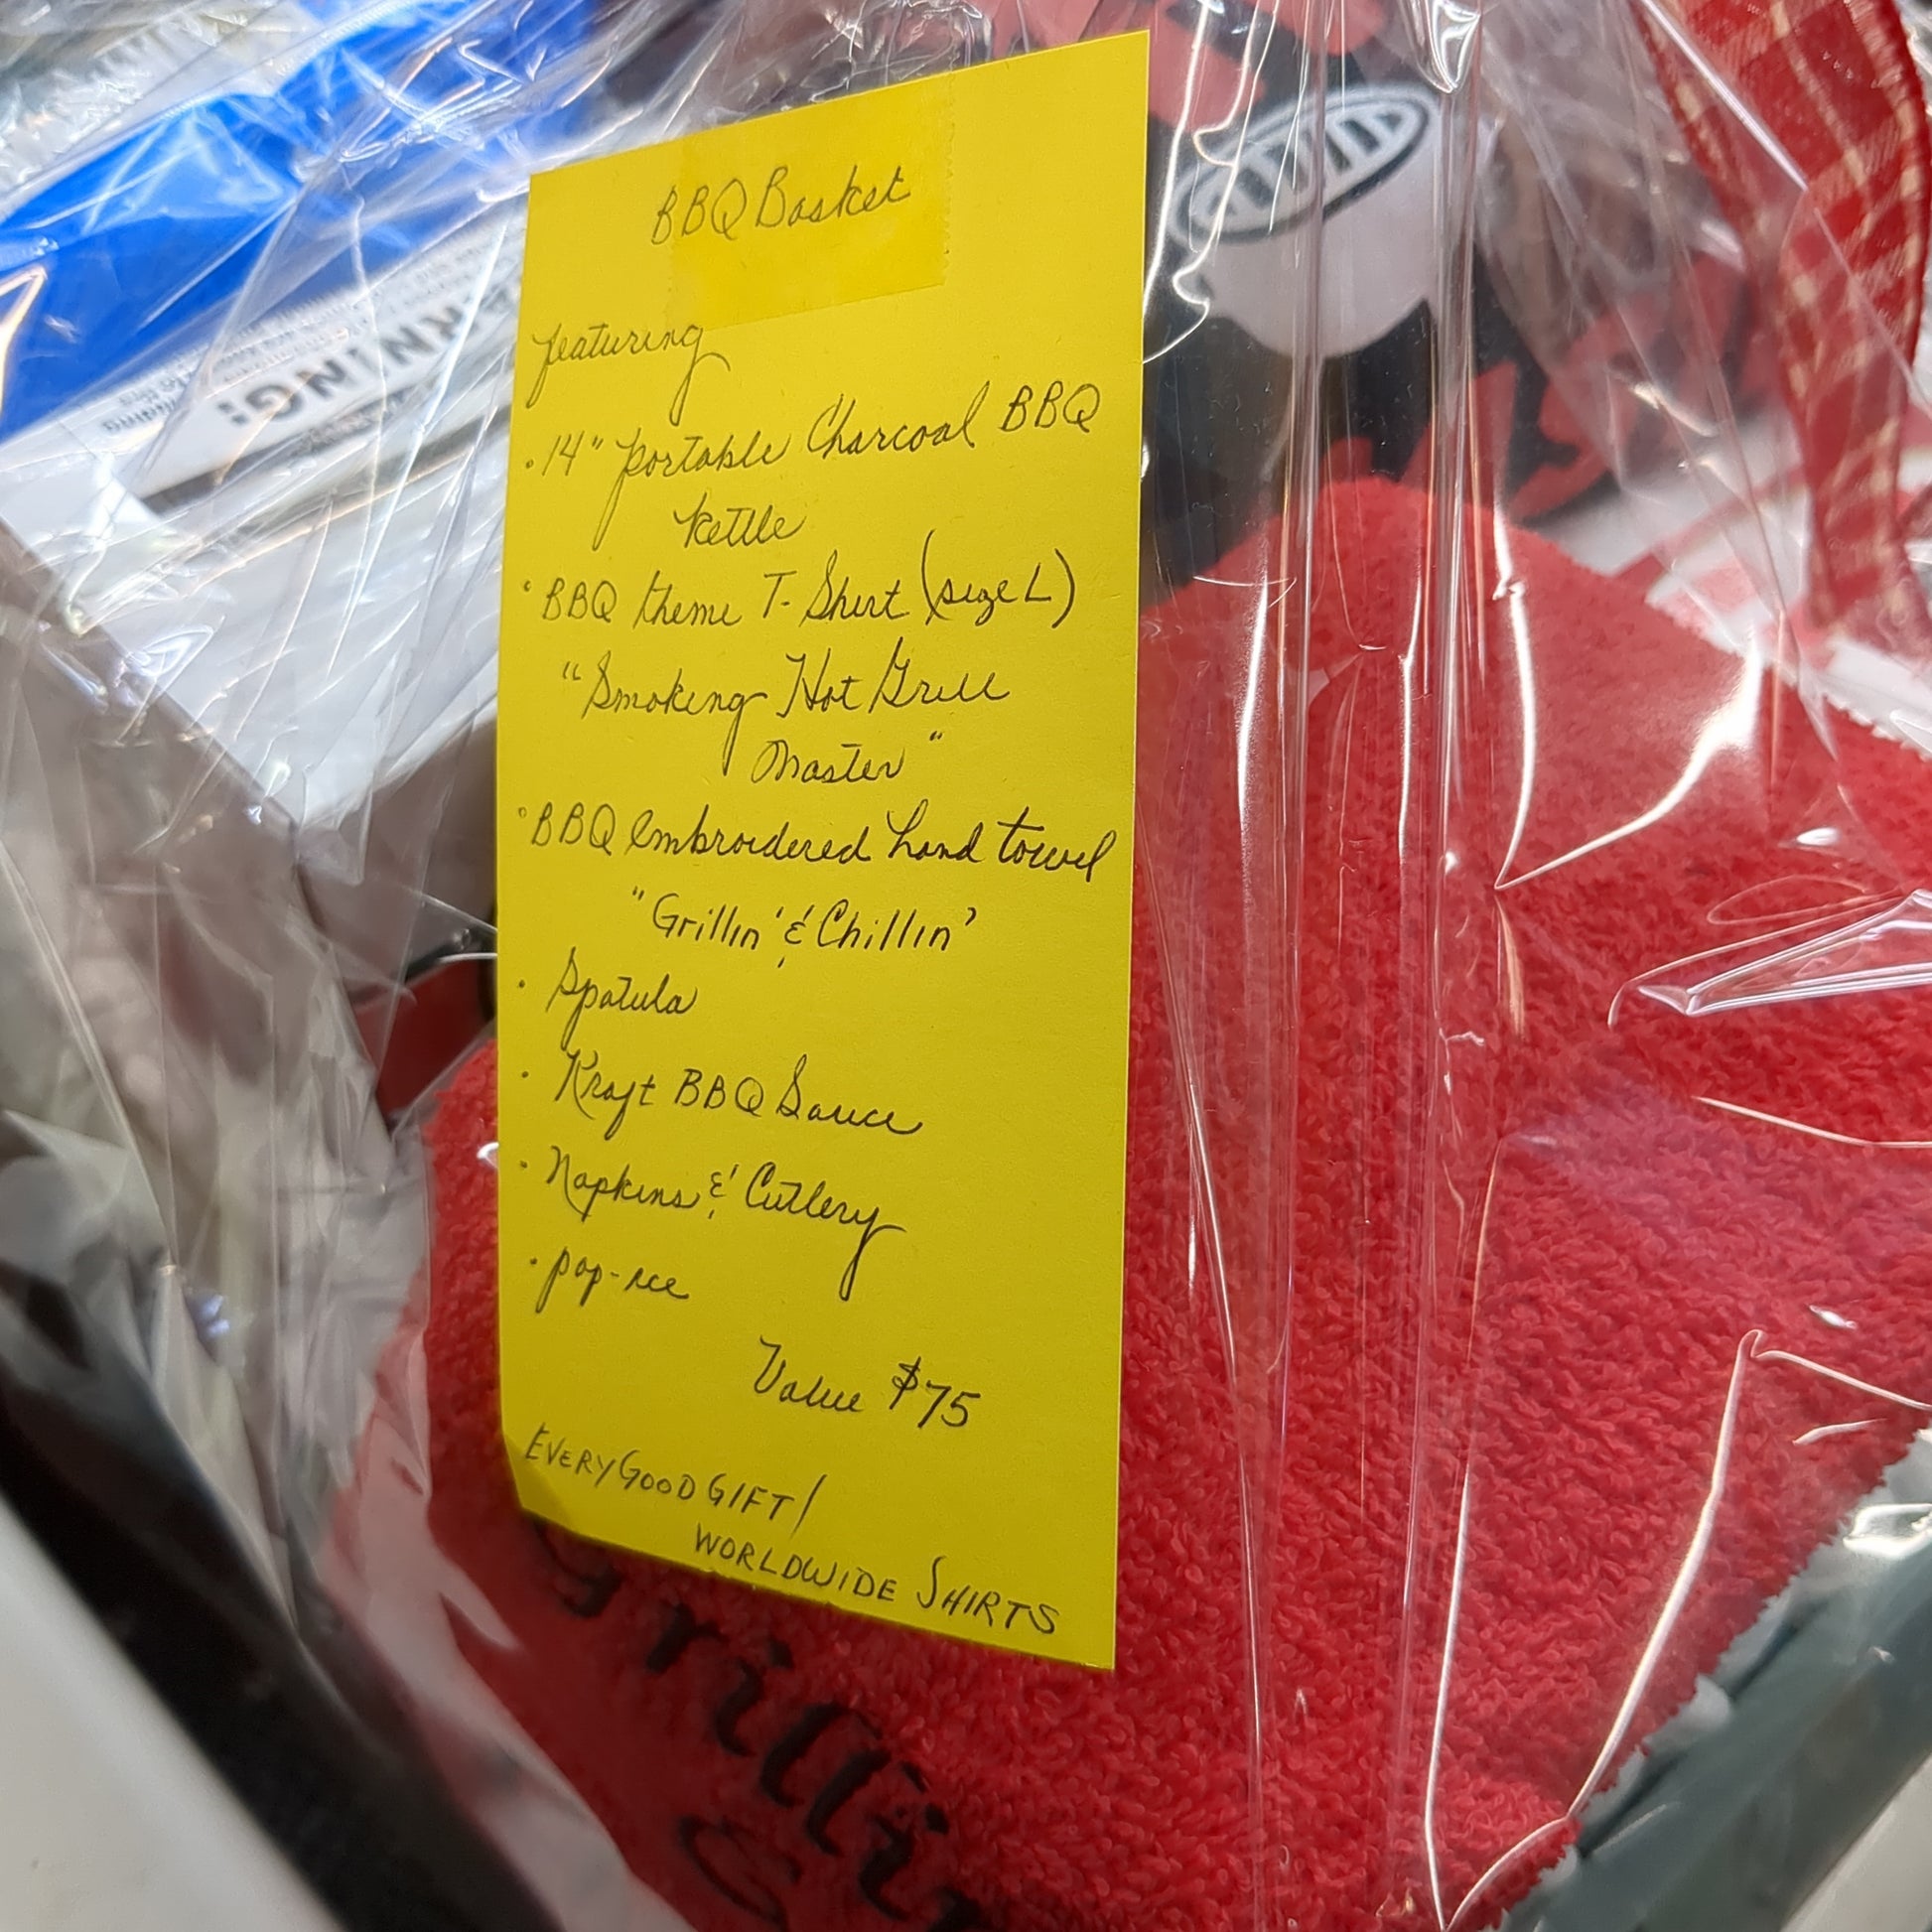 BBQ Basket
featuring
• 14" portable Charcoal BBQ
Kettle
• BBQ theme T-Shirt (size L)
"Smoking Hot Grill
Master"
• BBQ embroidered hand towel
"Grillin' & Chillin'
• Spatula
• Kraft BBQ Sauce
• Napkins & Cutlery
• pop-ice
Value $75
EVERY GOOD GIFT/
WORLDWIDE SHIRTS
Grillin